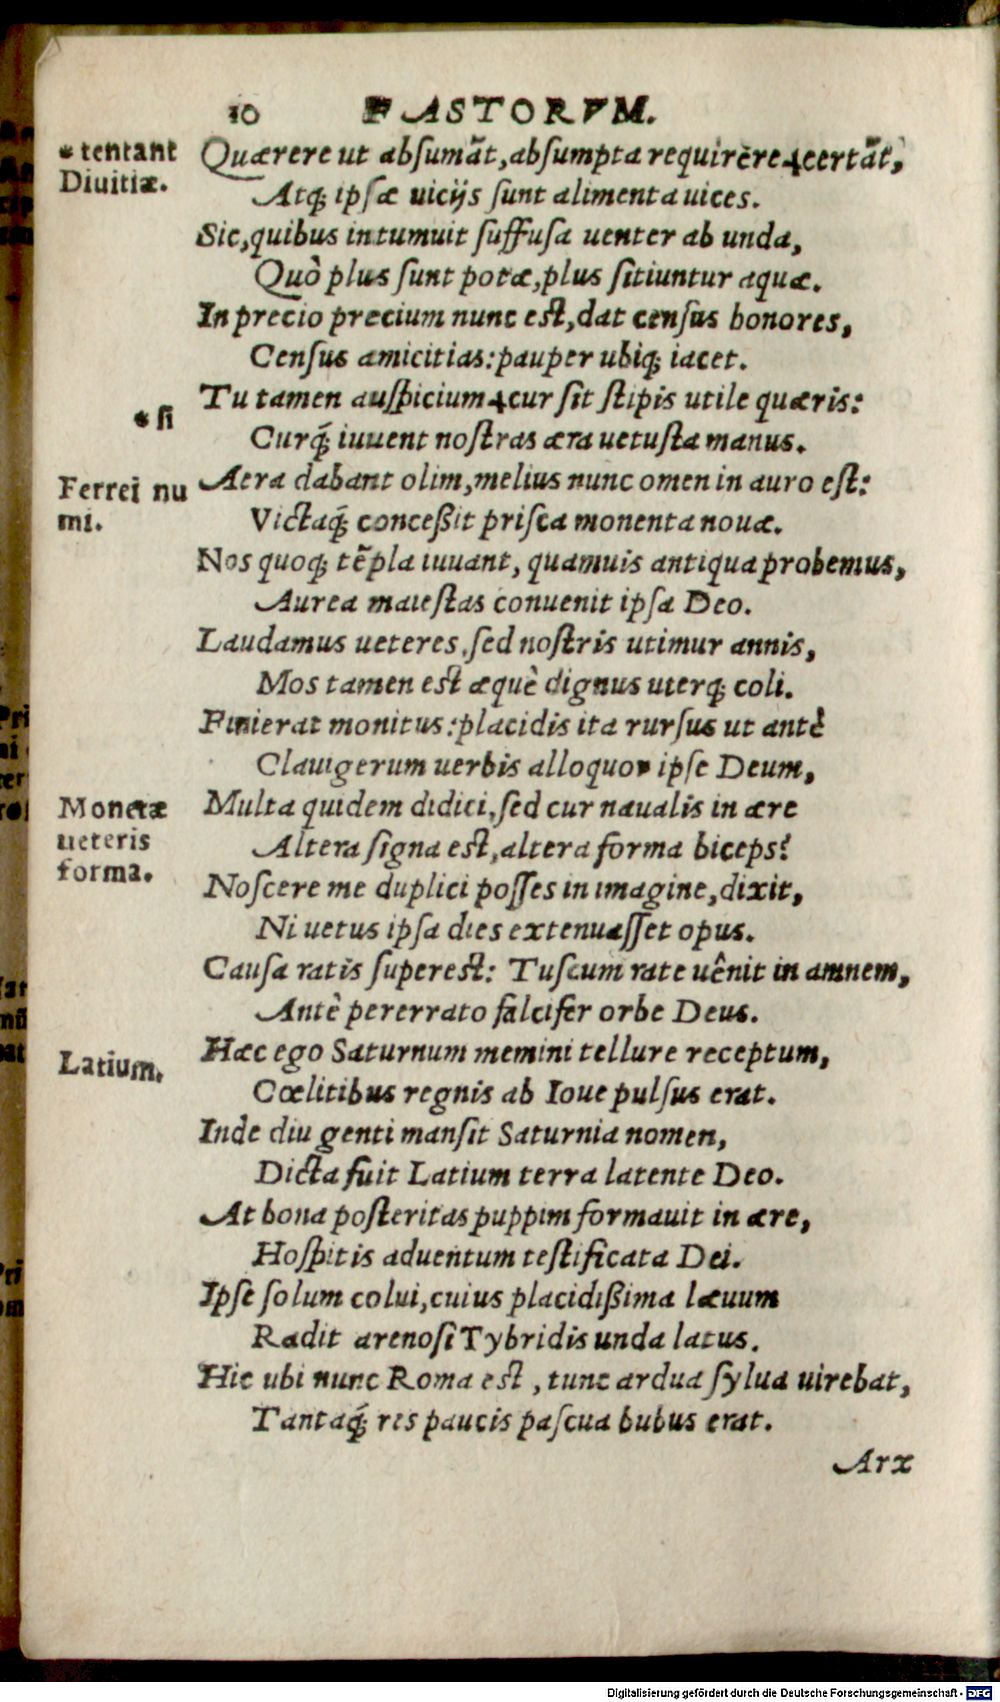 10 FASTORVM.
*tentant
Diuitiæ.
Quærere ut absumāt, absumpta requirere *certāt,
Atq; ipsæ uicijs sunt alimenta uices.
Sic, quibus intumuit suffusa uenter ab unda,
Quò plus sunt potæ, plus sitiuntur aquæ.
In precio precium nunc est, dat census honores,
Census amicitias: pauper ubiq; iacet.
*si
Tu tamen auspicium *cur sit stipis utile quæris:
Curq́; iuuent nostras æra uetusta manus.
Ferrei nu
mi.
Aera dabant olim, melius nunc omen in auro est:
Victaq́; conceßit prisca monenta nouæ.
Nos quoq; tēpla iuuant, quamuis antiqua probemus,
Aurea maiestas conuenit ipsa Deo.
Laudamus ueteres, sed nostris utimur annis,
Mos tamen est æquè dignus uterq; coli.
Finierat monitus: placidis ita rursus ut antè
Clauigerum uerbis alloquor ipse Deum,
Monetæ
ueteris
forma.
Multa quidem didici, sed cur naualis in ære
Altera signa est, altera forma biceps?
Noscere me duplici posses in imagine, dixit,
Ni uetus ipsa dies extenuasset opus.
Causa ratis superest: Tuscum rate uênit in amnem,
Antè pererrato falcifer orbe Deus.
Latium.
Hæc ego Saturnum memini tellure receptum,
Cœlitibus regnis ab Ioue pulsus erat.
Inde diu genti mansit Saturnia nomen,
Dicta fuit Latium terra latente Deo.
At bona posteritas puppim formauit in ære,
Hospitis aduentum testificata Dei.
Ipse solum colui, cuius placidißima læuum
Radit arenosi Tybridis unda latus.
Hic ubi nunc Roma est, tunc ardua sylua uirebat,
Tantaq́; res paucis pascua bubus erat.
Arx
Digitalisierung gefördert durch die Deutsche Forschungsgemeinschaft - DFG